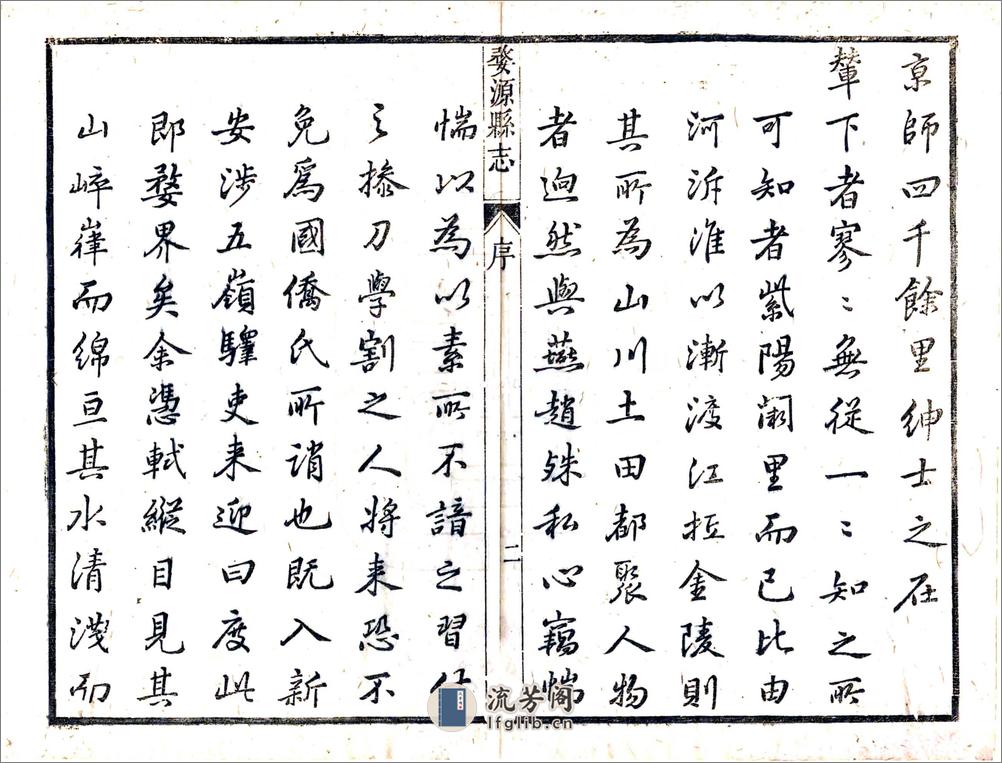 京師四千餘里紳士之在
輦下者寥〻無從一〻知之所
可知者紫陽闕里而已比由
河泝淮以漸渡江抵金陵則
其所為山川土田都聚人物
者迥然與燕趙殊私心竊惴
婺源縣志
序
二
惴以為以素所不諳之習
之摻刀學割之人將来恐不
免爲國僑氏所誚也既入新
安涉五嶺驛吏来迎曰度此
即婺界矣余憑軾縱目見其
山崒嵂而綿亘其水清淺而
流芳阁
lfglib.cn